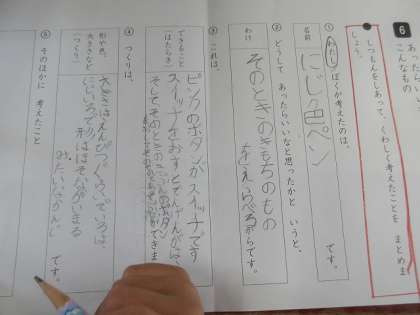 6
あったらいいな
こんなもの
しつもんをしあって、くわしく考えたことを まとめま
しょう。
① わたし・ぼくが考えたのは、
名前
にじ色ペン
です。
② どうして あったらいいなと思ったかと いうと、
わけ
そのときのきもちのもの
をえらべる
からです。
③ これは、
できること
(はたらき)
ピンクのボタンがスイッチです
スイッチをおすとでんげんが
そして、そのときの
ボタン
できま
④ つくりは、
形や色、
大きさなど
(つくり)
大きさはえんぴつぐらいでいろは、
にじいろで形はほそ
みたいなかんじ
です。
⑤ そのほかに 考えたこと